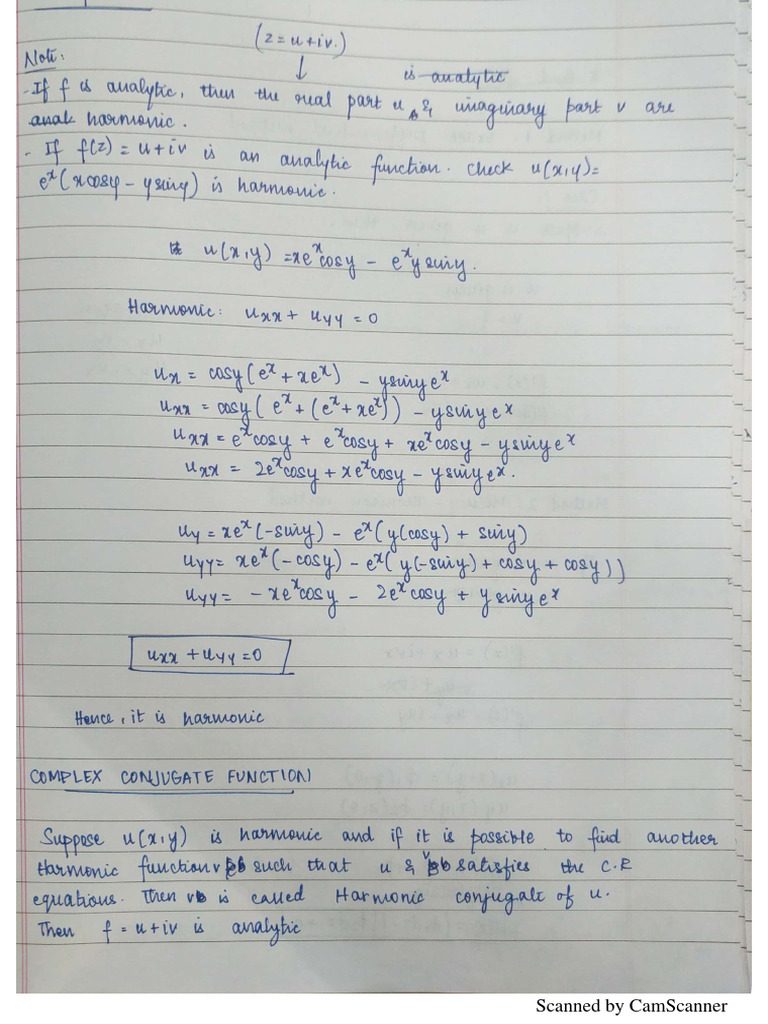 (z = u+iv.)
Note:
↓ is analytic
- If f is analytic, then the real part u & imaginary part v are
anal harmonic.
- If f(z) = u+iv is an analytic function. Check u(x,y)=
eˣ(xcosy - ysiny) is harmonic.
u(x,y) = xeˣcosy - eˣysiny.
Harmonic: uxx + uyy = 0
ux = cosy(eˣ + xeˣ) - ysinyeˣ
uxx = cosy(eˣ + (eˣ + xeˣ)) - ysinyeˣ
uxx = eˣcosy + eˣcosy + xeˣcosy - ysinyeˣ
uxx = 2eˣcosy + xeˣcosy - ysinyeˣ.
uy = xeˣ(-siny) - eˣ(y(cosy) + siny)
uyy = xeˣ(-cosy) - eˣ(y(-siny) + cosy + cosy))
uyy = -xeˣcosy - 2eˣcosy + ysinyeˣ
uxx + uyy = 0
Hence, it is harmonic
COMPLEX CONJUGATE FUNCTION
Suppose u(x,y) is harmonic and if it is possible to find another
Harmonic function v such that u & v satisfies the C.R
equations. Then v is called Harmonic conjugate of u.
Then f = u+iv is analytic
Scanned by CamScanner